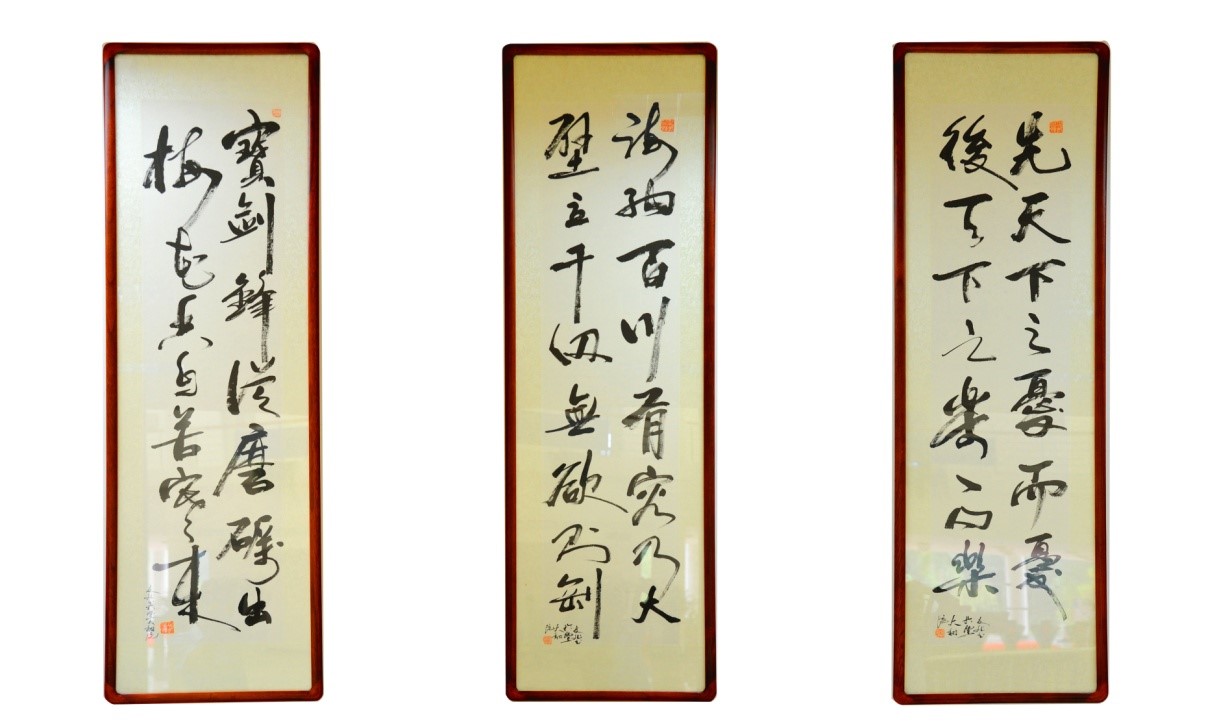 寶劍鋒從磨礪出
梅花香自苦寒來
海納百川有容乃大
壁立千仞無欲則剛
先天下之憂而憂
後天下之樂而樂